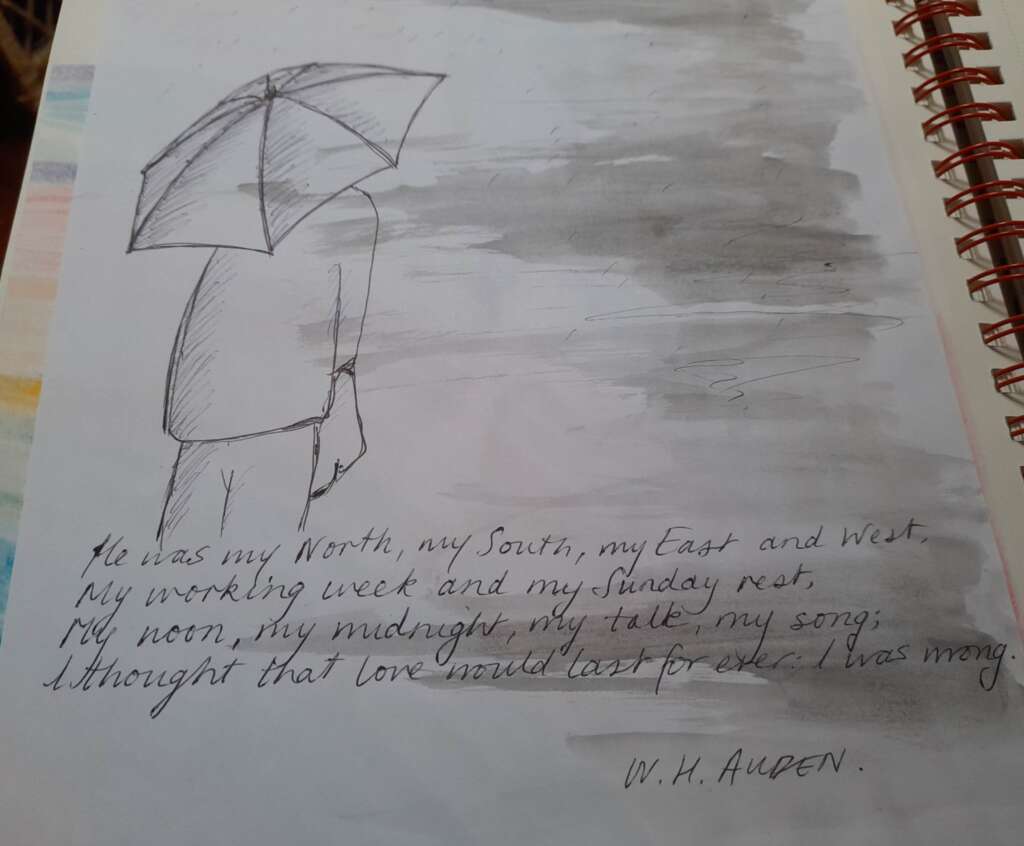 He was my North, my South, my East and West,
My working week and my Sunday rest,
My noon, my midnight, my talk, my song;
I thought that love would last for ever: I was wrong.
W. H. AUDEN.